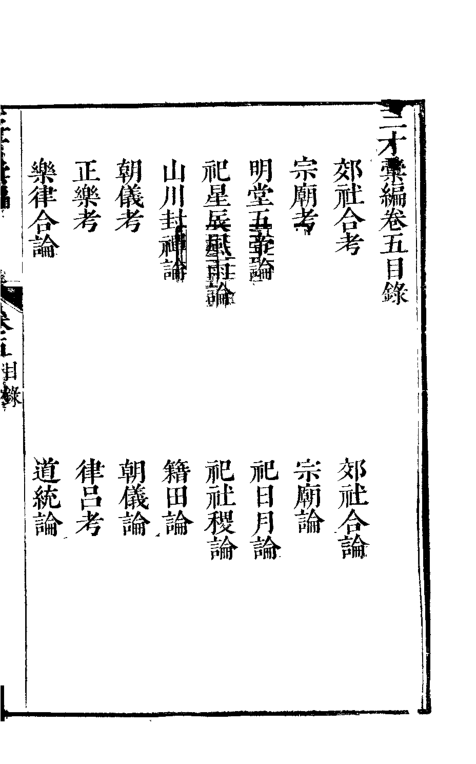 三才彙編卷五目錄
郊社合考
郊社合論
宗廟考
宗廟論
明堂五帝論
祀日月論
祀星辰風雨論
祀社稷論
山川封禪論
籍田論
朝儀考
朝儀論
正樂考
律呂考
樂律合論
道統論
三才彙編
卷五
目錄